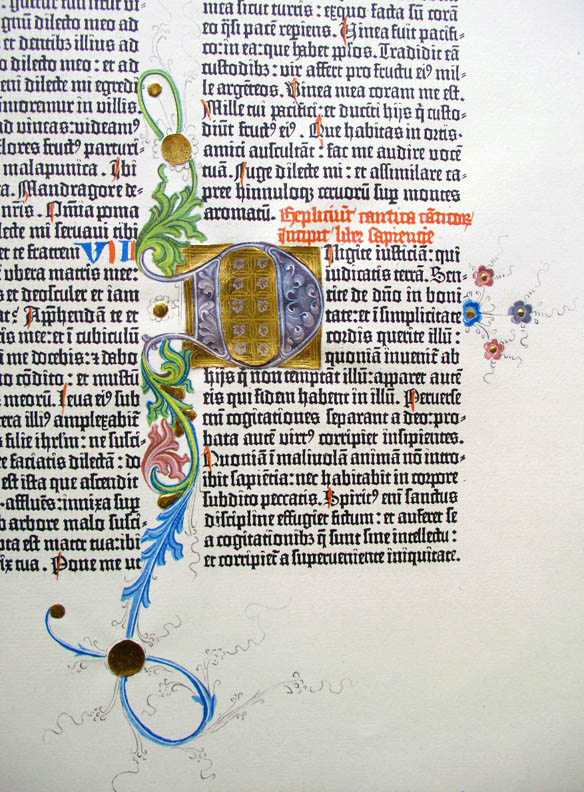 guttur tuum sicut vi-
gnū dilecto meo ad
et dentibꝫ illius ad
dilecto meo: et ad
eni dilecte mi egredi
nmoremur in villis.
ad vineas: videamꝰ
flores fructꝰ parturi-
malapunica. Ibi
ea. Mandragore de-
nris. Omīa poma
lecte mi servaui tibi
et te fratrem VIII
ubera matris mee:
s et deosculer et iam
at: Apphendam te et
is mee: et ī cubiculū
me docebis: ⁊ dabo
o cōdito: et mustū
meorū. Leua eiꝰ sub
tera illiꝰ amplexabit̄
s filie ihrlm: ne susci-
re faciatis dilectā: do
est ista que ascendit
affluēs: innixa sup
b arbore malo susci-
pta est mater tua: ibi
ix tua. Pone me ut
mea sicut turris: ex quo facta sū corā
eo q̄si pacē repiens. Vinea fuit pacifi-
co: in ea: que habet pplos. Tradidit eā
custodibꝫ: vir affert pro fructu eiꝰ mil-
le argēteos. Vinea mea coram me est.
Mille tui pacifici: et ducēti hijs q̄ custo-
diūt fructꝰ eiꝰ. Que habitas in ortis-
amici auscultāt: fac me audire vocē
tuam. Fuge dilecte mi: et assimilare ca-
pree hinnuloqꝫ ceruorū sup montes
aromatū. Expliciūt cantica cāticorꝝ
Incipit liber sapiencie
Diligite iusticiā: qui
iudicatis terrā. Sen-
tite de dn̄o in boni
tate: et ī simplicitate
cordis querite illū:
quoniā inuenit̄ ab
hijs q̄ non temptāt illū: apparet autē
eis qui fidem habent in illū. Peruerse
em̄ cogitationes separant a deo: pro-
bata autē virtꝰ corripiet insipientes.
Quoniā ī maliuolā animā nō intro-
ibit sapiētia: nec habitabit in corpore
subdito peccatis. Spiritꝰ em̄ sanctus
discipline effugiet fictum: et auferet se
a cogitationibꝫ q̄ sunt sine intellectu:
et corripiet̄ a superueniente iniquitate.